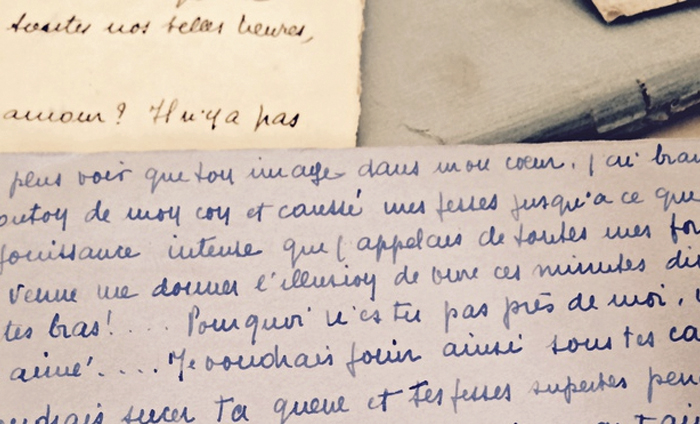 toutes nos belles heures,
amour ? Il n'y a pas
peux voir que ton image dans mon cœur. J'ai bran
outon de mon con et caressé mes fesses jusqu'à ce que
jouissance intense que j'appelais de toutes mes for
venue me donner l'illusion de vivre ces minutes di
tes bras! .... Pourquoi n'es tu pas près de moi,
aimé.... Je voudrais jouir ainsi sous tes ca
oudrais sucer ta queue et tes fesses superbes pen